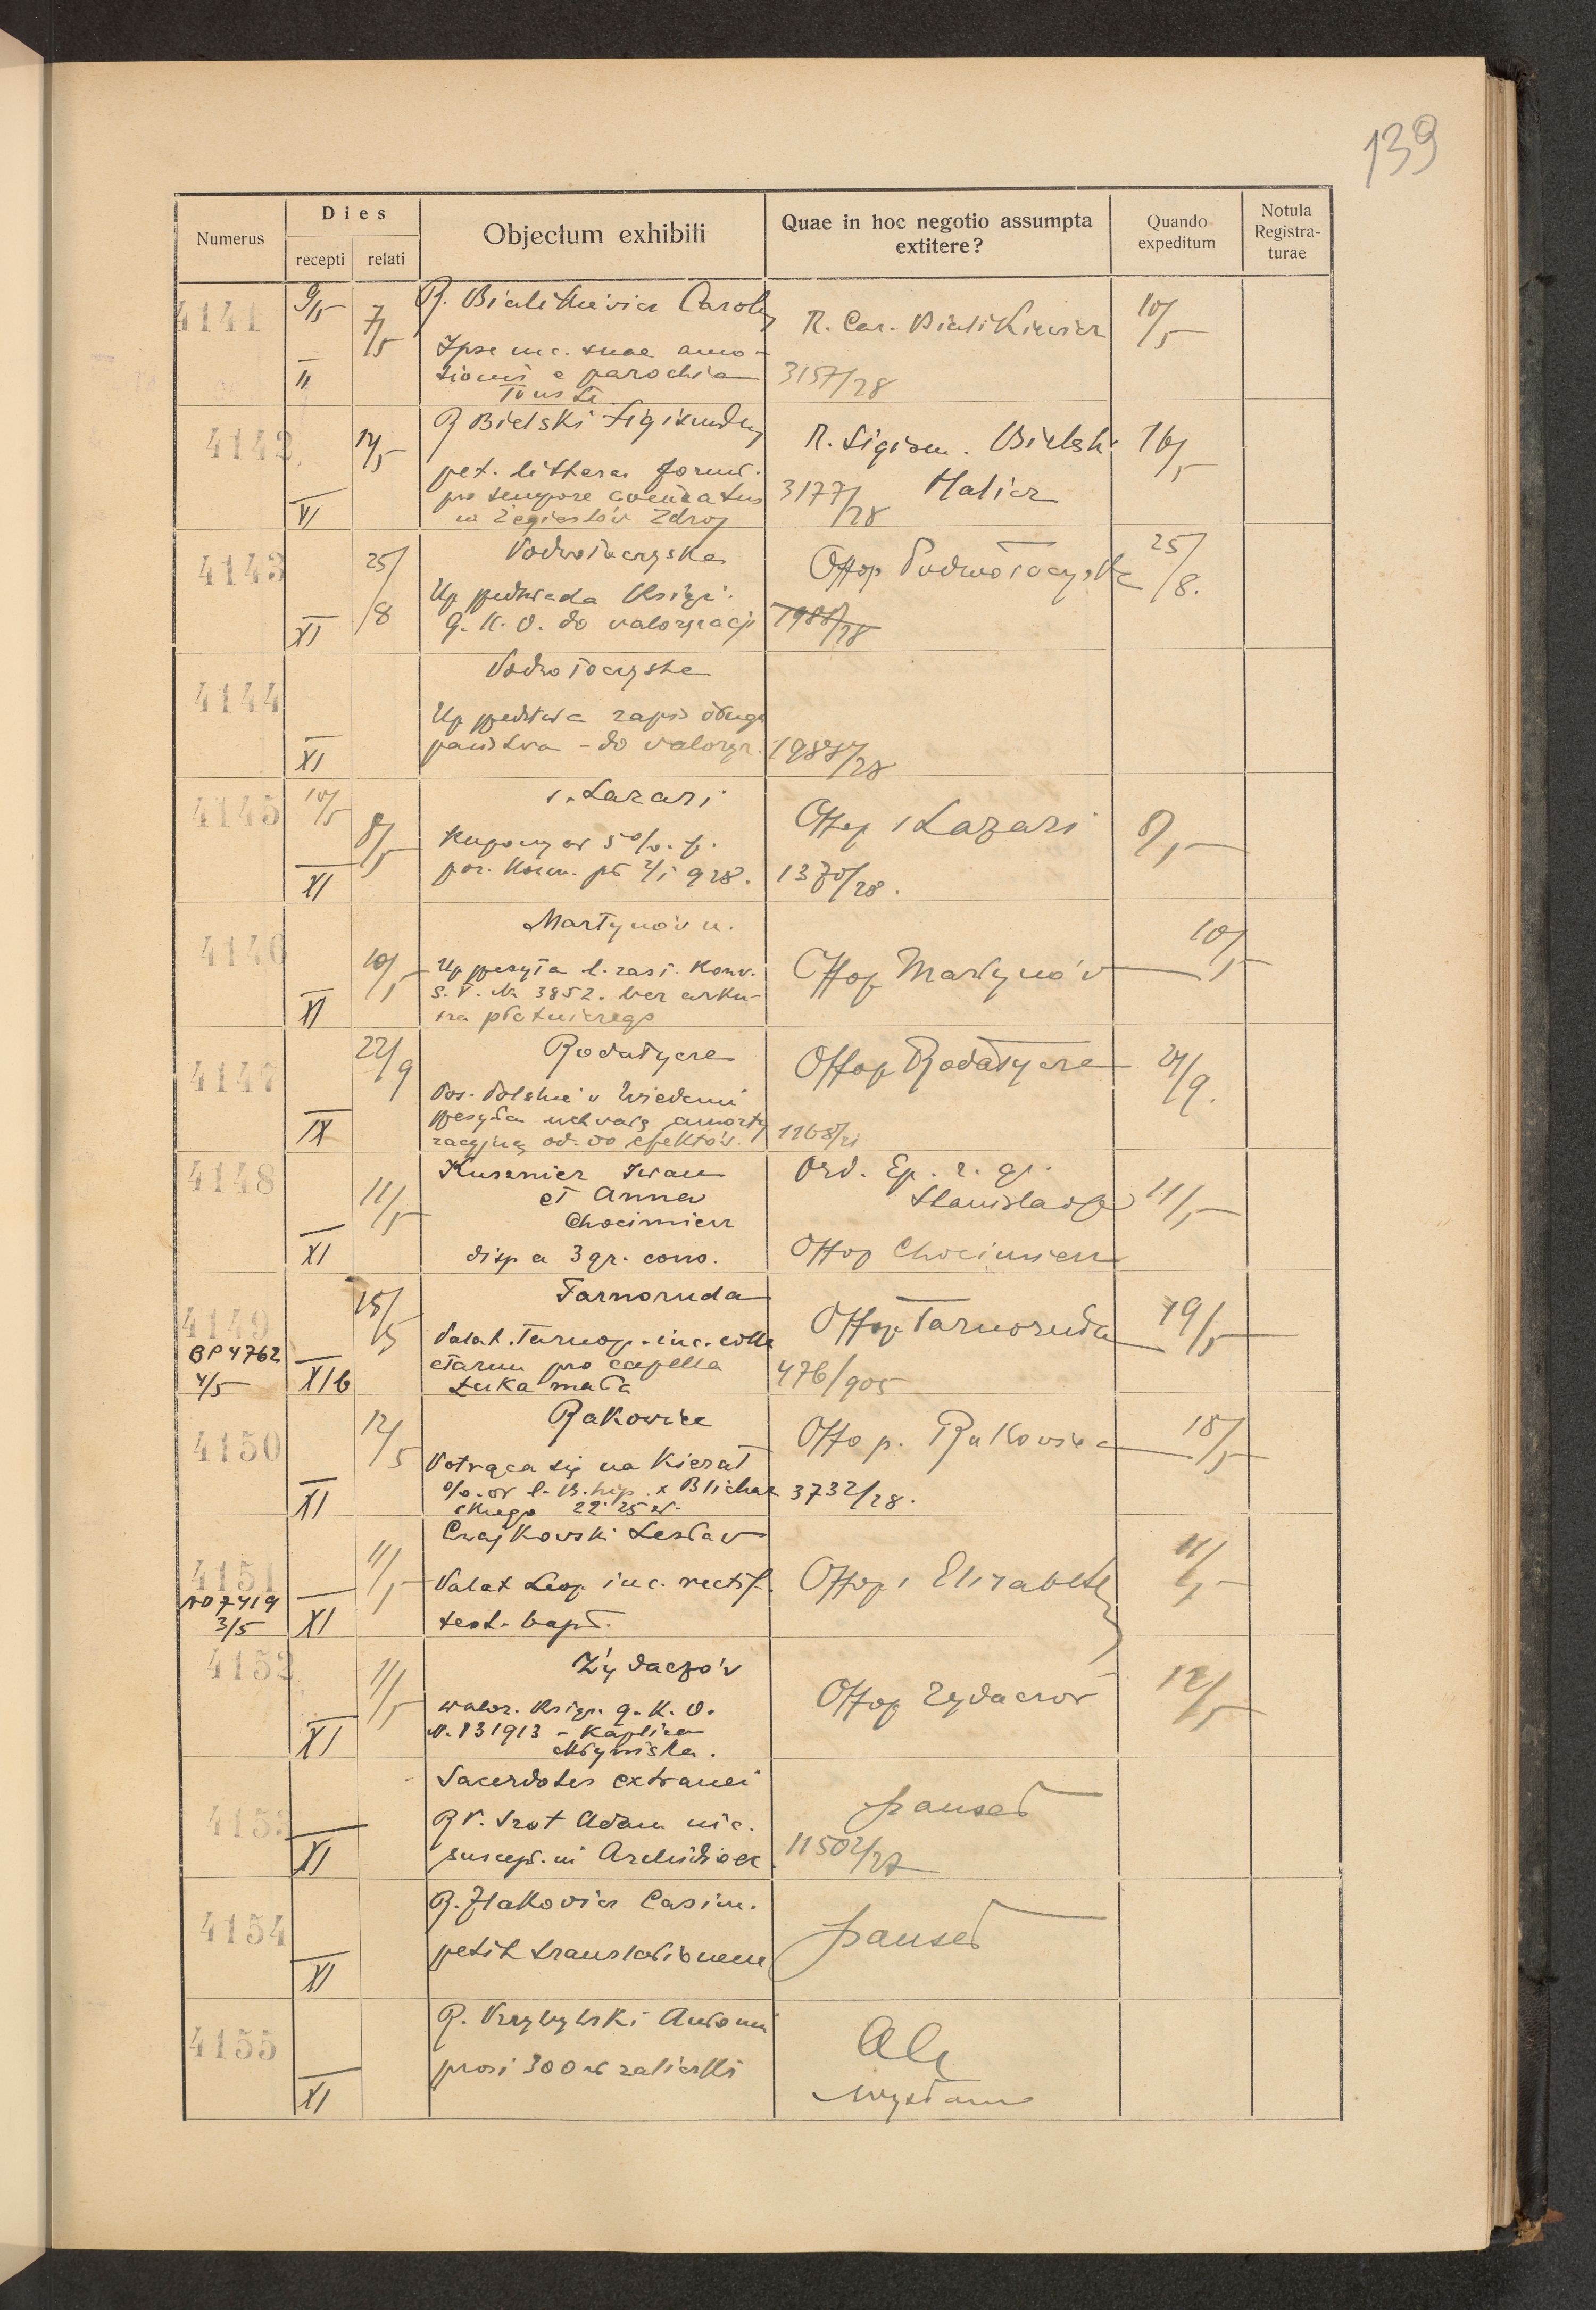 139
Numerus
Dies
recepti relati
Objectum exhibiti
Quae in hoc negotio assumpta
extitere?
Quando
expeditum
Notula
Registra-
turae
4141 9/5 7/5 R. Bialikiewicz Carol R. Car. Bialikiewicz 10/5
Ipse inc. suae amo-
II tionis e parochia 3157/28
Touste
4142 14/5 R Bielski Sigismund R. Sigism. Bielski 16/5
pet. litteras form.
VI pro tempore 3177/28 Halicz
w Żegiestów Zdroj
4143 25/8 Podwołoczyska Offop Podwołoczyska 25/8.
Up przedkłada Książ.
XI P. K. O. do waloryzacji 1988/28
4144 Podwołoczyska
Up przedkłada zapis długu
XI państwa - do waloryz. 1988/28
4145 10/5 8/5 s. Lazari Offop s Lazari 8/5
Kupony od 5% p.
XI poż. konw. pł 2/1 928. 1370/28.
4146 10/5 Martynów n. Offop Martynów 10/5
Up przesyła l. zast. Konw.
S. V. Nr 3852. bez arku-
XI sza płatniczego
4147 22/9 Rodatycze Offop Rodatycze 24/9.
Pos. Polskie w Wiedeniu
przesyła uchwałę amorty
IX zacyjną od. do efektów. 1168/21
4148 11/5 Kusznier Iwan Ord. Ep. r. gr.
et Anna Stanisladop 11/5
Chocimierz
XI disp a 3 gr. cons. Offop Chocimierz
4149 15/5 Tarnoruda Offop Tarnoruda 19/5
BP 4762 Palat. Tarnop. inc. colle
4/5 XIb ctarum pro capella 476/905
Łuka mała
4150 12/5 Rakowice Offop. Rakowiec 18/5
Potrąca się na Kierat
XI % od l. B. hip. x Blichar 3732/28.
skiego 22.25 zł.
4151 11/5 Czajkowski Lesław
AD 7419 Palat Leop. inc. rectif. Offop s Elisabeth 11/5
3/5 XI test. bapt.
4152 11/5 Żydaczów Offop Zydaczow 12/5
walor. Książ. P. K. O.
N. 131913 - Kaplica
XI Młyniska.
4153 Sacerdotes extranei
R P. Szot Adam inc. pauset
XI suscept. in Archidioec. 11502/27
4154 R. Żłakowicz Casim.
XI petit translationem pauset
4155 R. Przybylski Antoni
prosi 300 zł zaliczki
XI wysłano